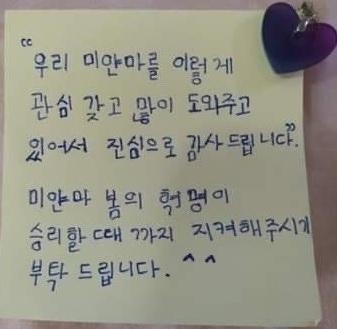 “우리 미얀마를 이렇게
관심 갖고 많이 도와주고
있어서 진심으로 감사드립니다”.
미얀마 봄의 혁명이
승리할 때 까지 지켜해주시기
부탁 드립니다. ^ ^